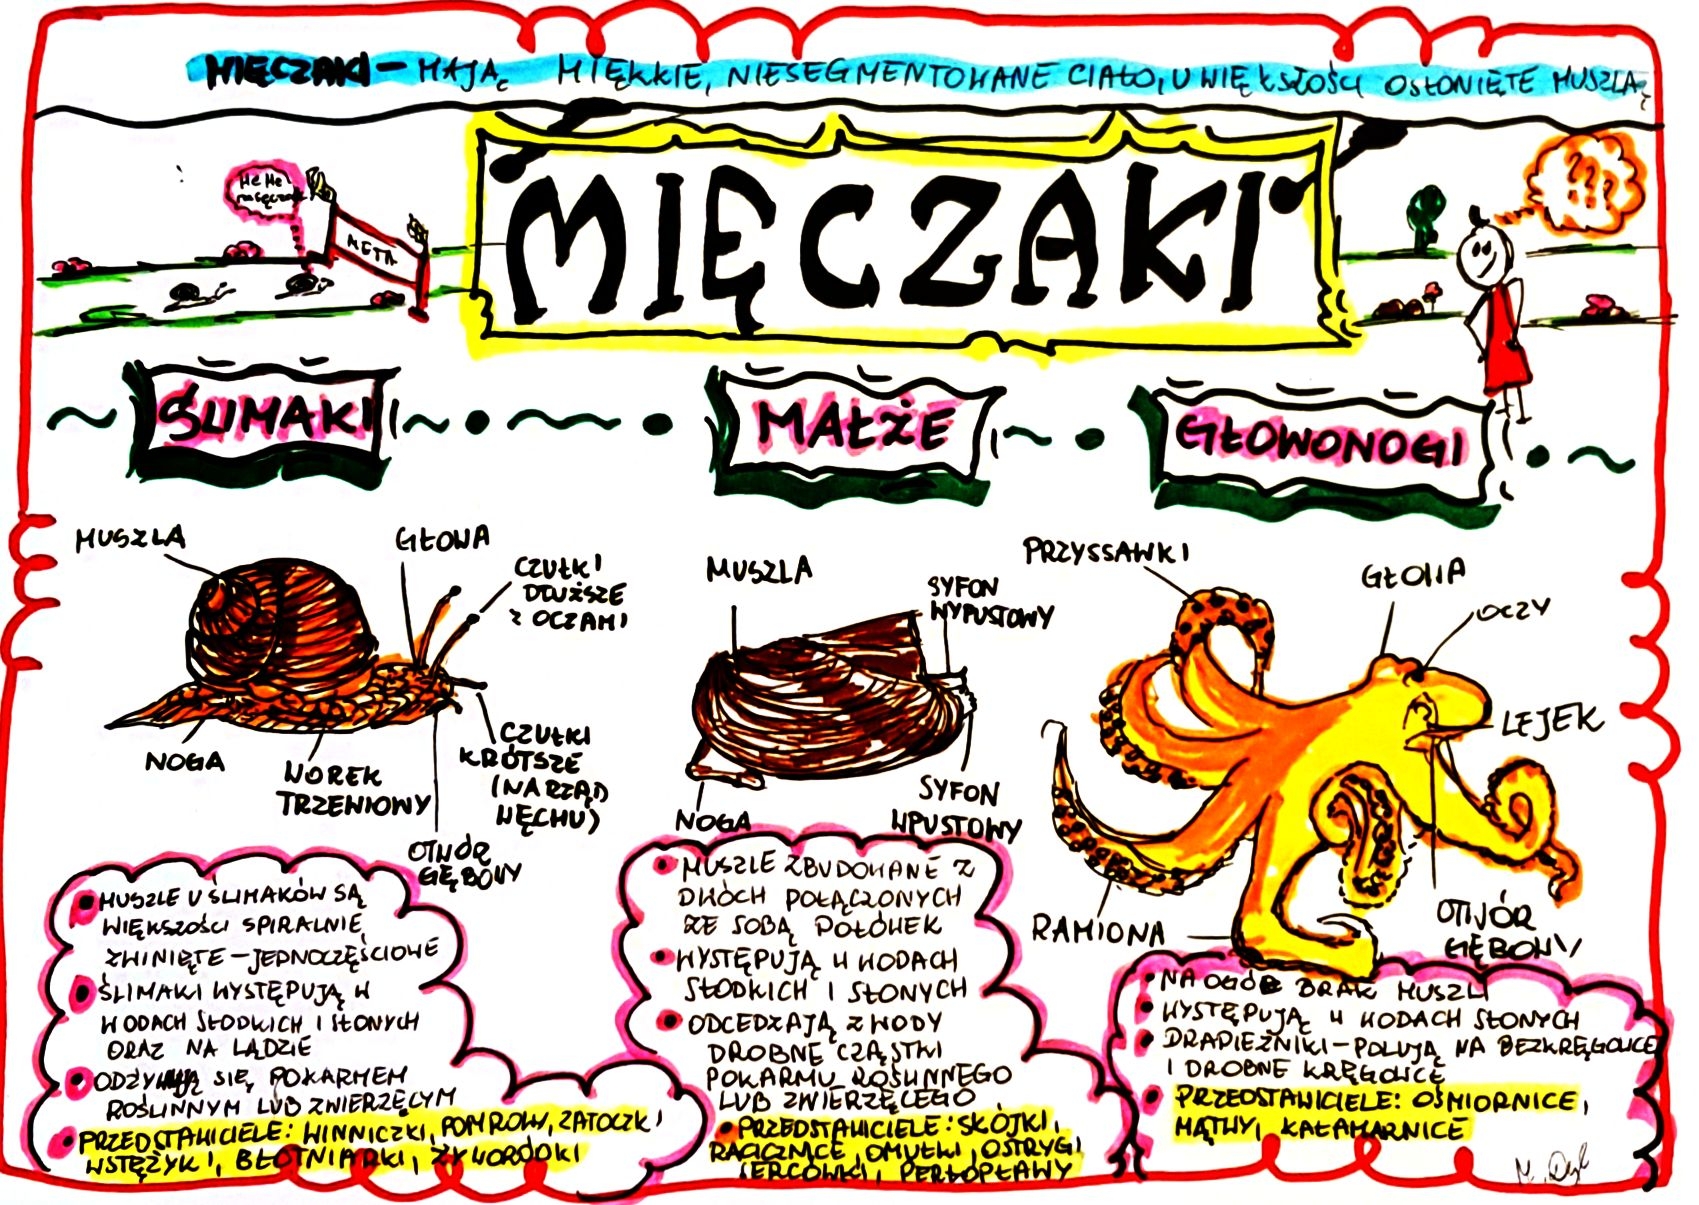 MIĘCZAKI – MAJĄ MIĘKKIE, NIESEGMENTOWANE CIAŁO, U WIĘKSZOŚCI OSŁONIĘTE MUSZLĄ
MIĘCZAKI
He He
META
???
ŚLIMAKI
MAŁŻE
GŁOWONOGI
MUSZLA
GŁOWA
CZUŁKI
DŁUŻSZE
Z OCZAMI
NOGA
WOREK
TRZENIOWY
CZUŁKI
KRÓTSZE
(NARZĄD
WĘCHU)
OTWÓR
GĘBOWY
MUSZLA
SYFON
WYPUSTOWY
NOGA
SYFON
WPUSTOWY
PRZYSSAWKI
GŁOWA
OCZY
LEJEK
RAMIONA
OTWÓR
GĘBOWY
MUSZLE U ŚLIMAKÓW SĄ
WIĘKSZOŚCI SPIRALNIE
ZWINIĘTE – JEDNOCZĘŚCIOWE
ŚLIMAKI WYSTĘPUJĄ W
WODACH SŁODKICH I SŁONYCH
ORAZ NA LĄDZIE
ODŻYWIAJĄ SIĘ POKARMEM
ROŚLINNYM LUB ZWIERZĘCYM
PRZEDSTAWICIELE: WINNICZKI, POMROWY, ZATOCZKI
WSTĘŻYKI, BŁOTNIARKI, ŻYWORÓDKI
MUSZLE ZBUDOWANE Z
DWÓCH POŁĄCZONYCH
ZE SOBĄ POŁÓWEK
WYSTĘPUJĄ W WODACH
SŁODKICH I SŁONYCH
ODCEDZAJĄ Z WODY
DROBNE CZĄSTKI
POKARMU ROŚLINNEGO
LUB ZWIERZĘCEGO
PRZEDSTAWICIELE: SKÓJKI,
RACICZNICE, OMUŁKI, OSTRYGI
SERCÓWKI, PERŁOPŁAWY
NA OGÓŁ BRAK MUSZLI
WYSTĘPUJĄ W WODACH SŁONYCH
DRAPIEŻNIKI – POLUJĄ NA BEZKRĘGOWCE
I DROBNE KRĘGOWCE
PRZEDSTAWICIELE: OŚMIORNICE,
MĄTWY, KAŁAMARNICE